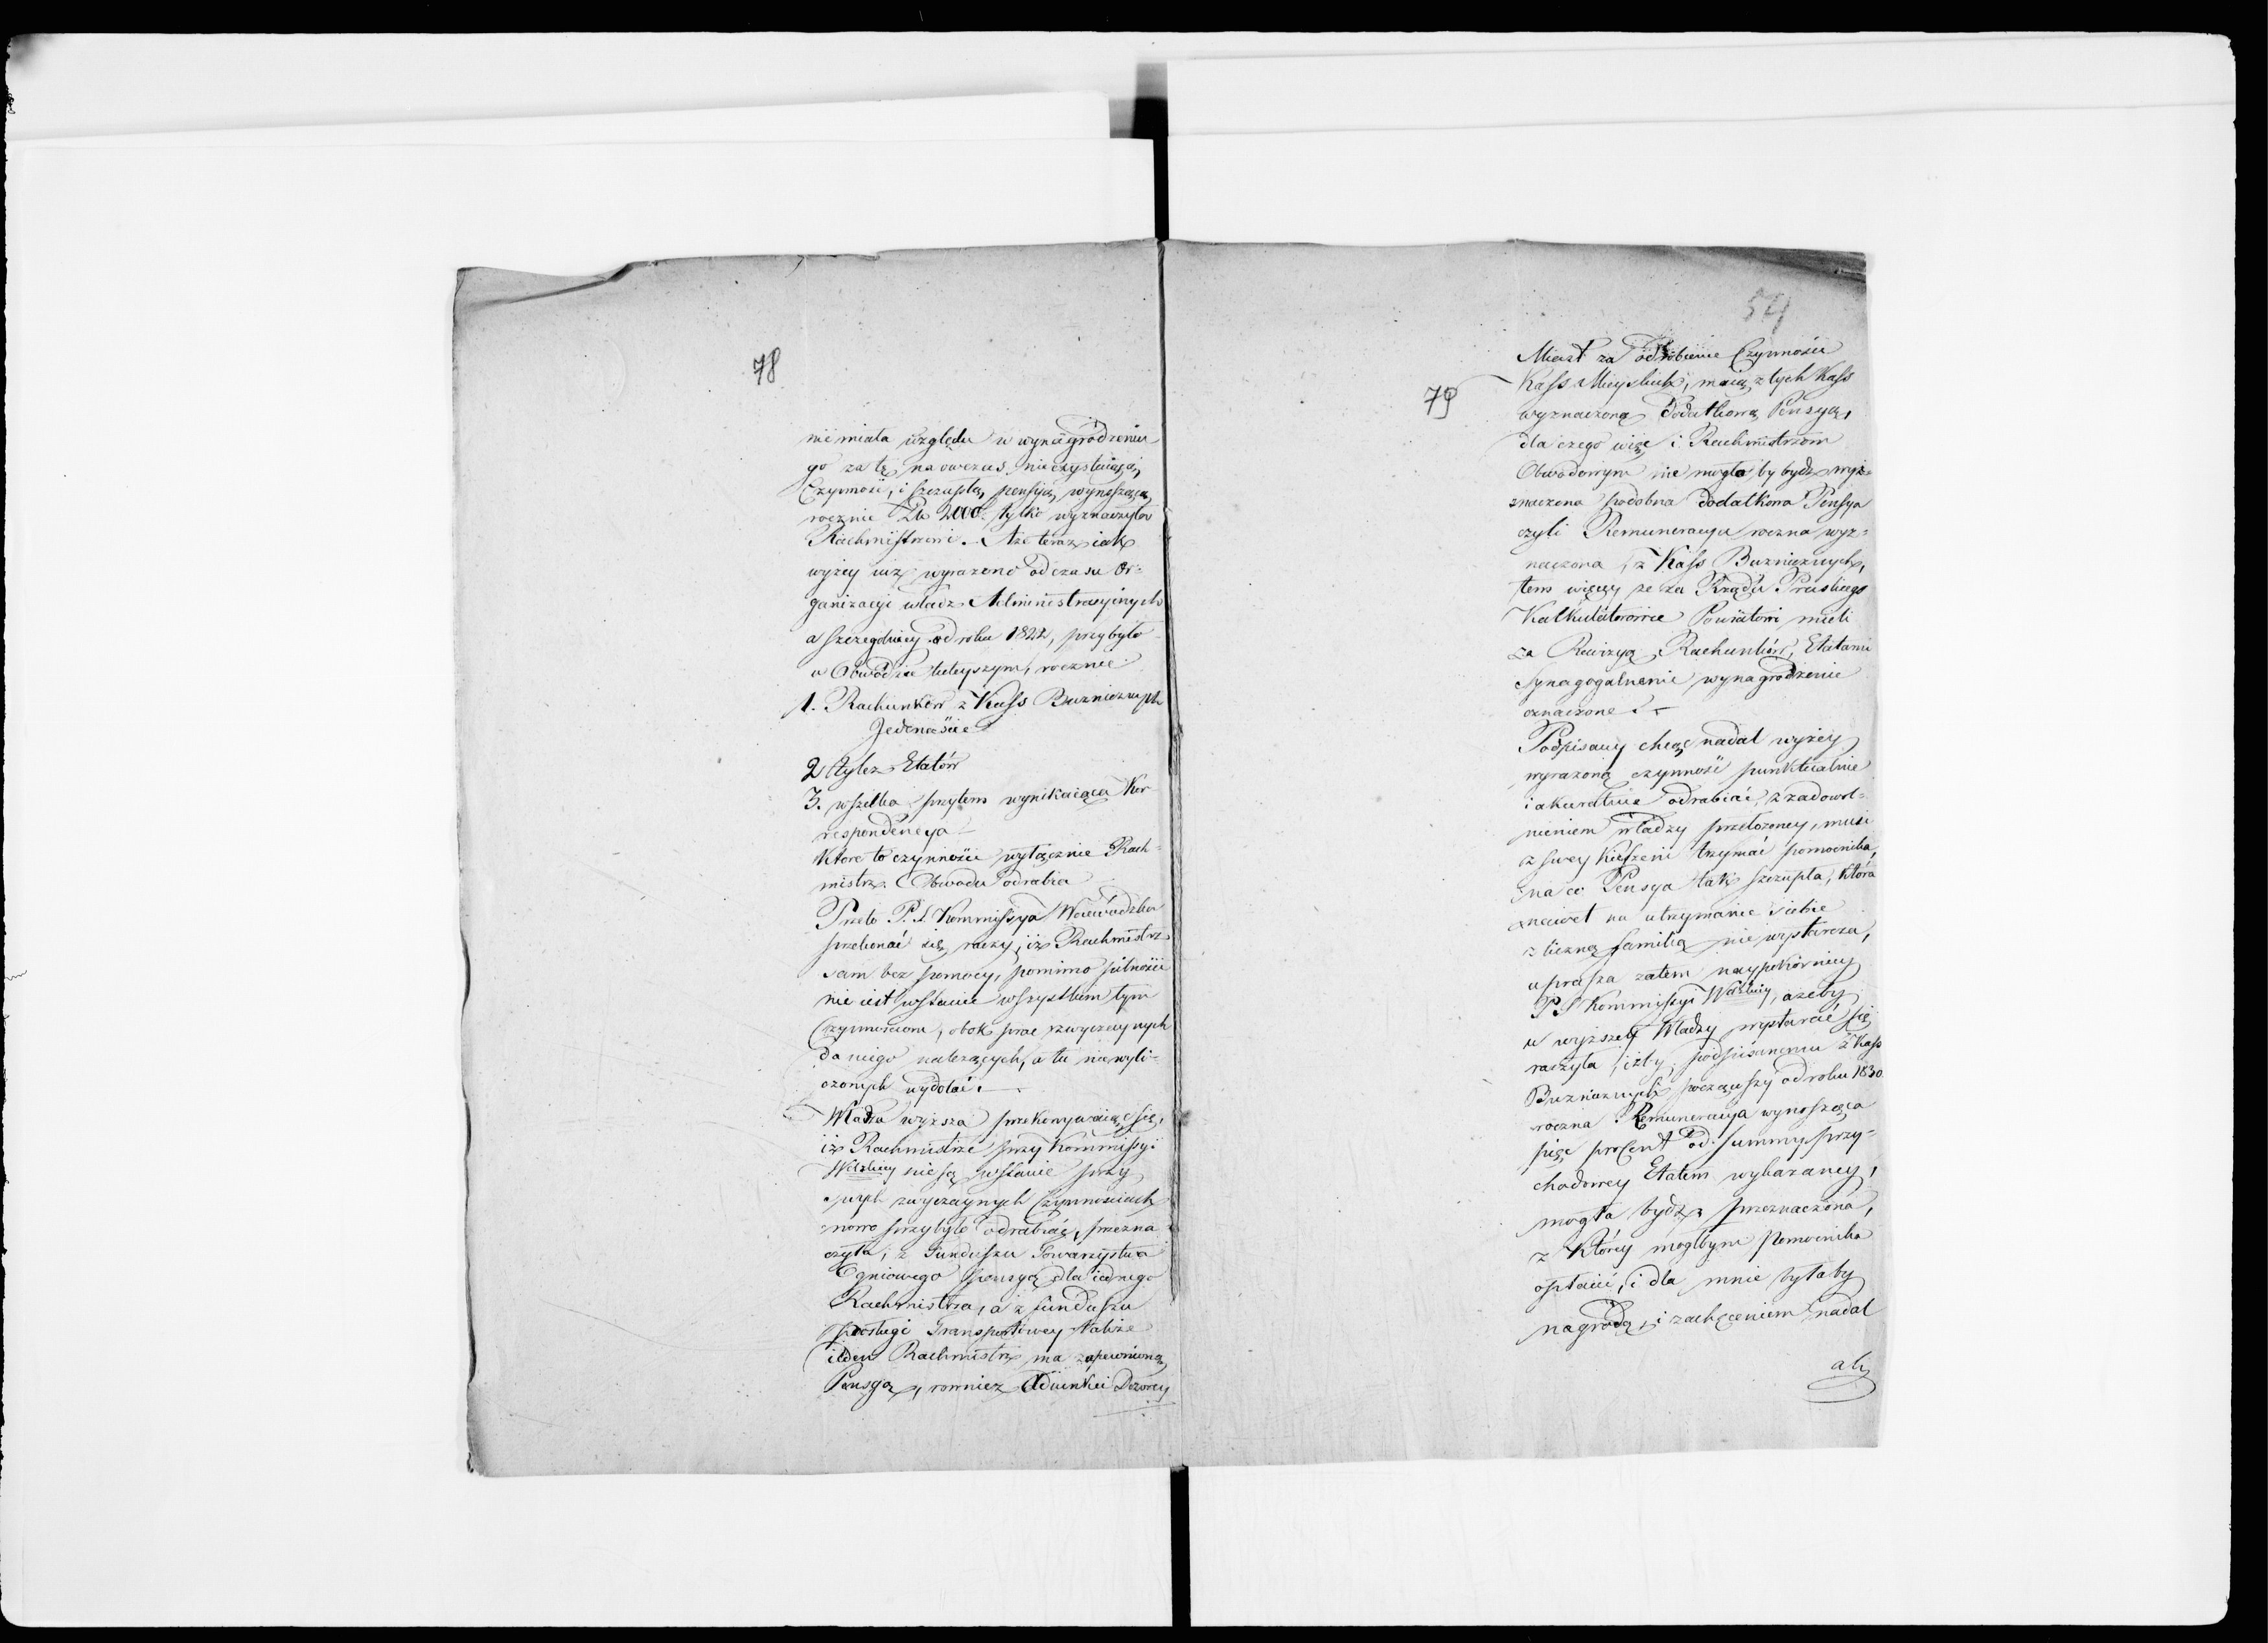 78
nie miała względu w wynagrodzeniu
go za tę na owczas nieexystuiącą
Czynność, i szczupłą pensyą wynoszącą
rocznie Złp 2000. tylko wyznaczyła
Rachmistrzowi. Ale teraz iak
wyżey iuż wyrażono od czasu Or-
ganizacyi władz Administracyinych
a szczegulniey od roku 1822, przybyło
w Obwodzie tuteyszym, rocznie
1. Rachunków z Kass Bużniczych
Jedenaście
2 tyleż Etatów
3. wszelka przytem wynikaiąca Kor
respondencya
Które to czynności wyłącznie Rach-
mistrz Obwodu odrabia
Przeto P. S. Kommissya Woiewódzka
przekonać się raczy, iż Rachmistrz
sam bez pomocy, pomimo pilności
nie iest wstanie wszystkim tym
Czynnościom, obok prac zwyczaynych
do niego należących, a tu niewyli-
czonych wydołać.
Władza wyższa przekonywaiąc się,
iż Rachmistrze przy Kommissyi
Wdzkiey nie są wstanie przy
swych zwyczaynych Czynnościach
nowo przybyłe odrabiać, przezna
czyła, z Funduszu Towarzystwa
Ogniowego pensyą dla iednego
Rachmistrza, a z funduszu
posługi Transportowey także
ieden Rachmistrz ma zapewnioną
Pensyą, rownież Adiunkci Dozorcy
54
79
Miast za odrobienie Czynności
Kass Mieyskich, maią z tych Kass
wyznaczoną dodatkową Pensyą,
dla czego więc i Rachmistrzom
Obwodowym nie mogła by bydź wyż-
znaczona podobna dodatkowa Pensya
czyli Remuneracya roczna wyz-
naczona z Kass Bużniczych,
tem więcey że za Rządu Pruskiego
Kalkulatorowie Powiatowi mieli
za Rewizyą Rachunków, Etatami
Synagogalnemi wynagrodzenie
oznaczone.
Podpisany chcąc nadal wyżey
wyrażoną czynność punktualnie
i akuratnie odrabiać, z zadowol-
nieniem władzy przełożoney, musi
z swey kieszeni trzymać pomocnika,
na co Pensya tak szczupła, która
nawet na utrzymanie siebie
z liczną familią nie wystarcza,
uprasza zatem naypokorniey
P S Kommissyi Wdzkiey, ażeby
u wyższey Władzy wystarać się
raczyła, iżby podpisanemu z Kass
Bużniczych począwszy od roku 1830
roczna Remuneracya wynosząca
pięć procent od summy przy-
chodowey Etatem wykazaney,
mogła bydź przeznaczona,
z którey mogłbym Pomocnika
opłacić, i dla mnie byłaby
nagrodą, i zachęceniem nadal
aby